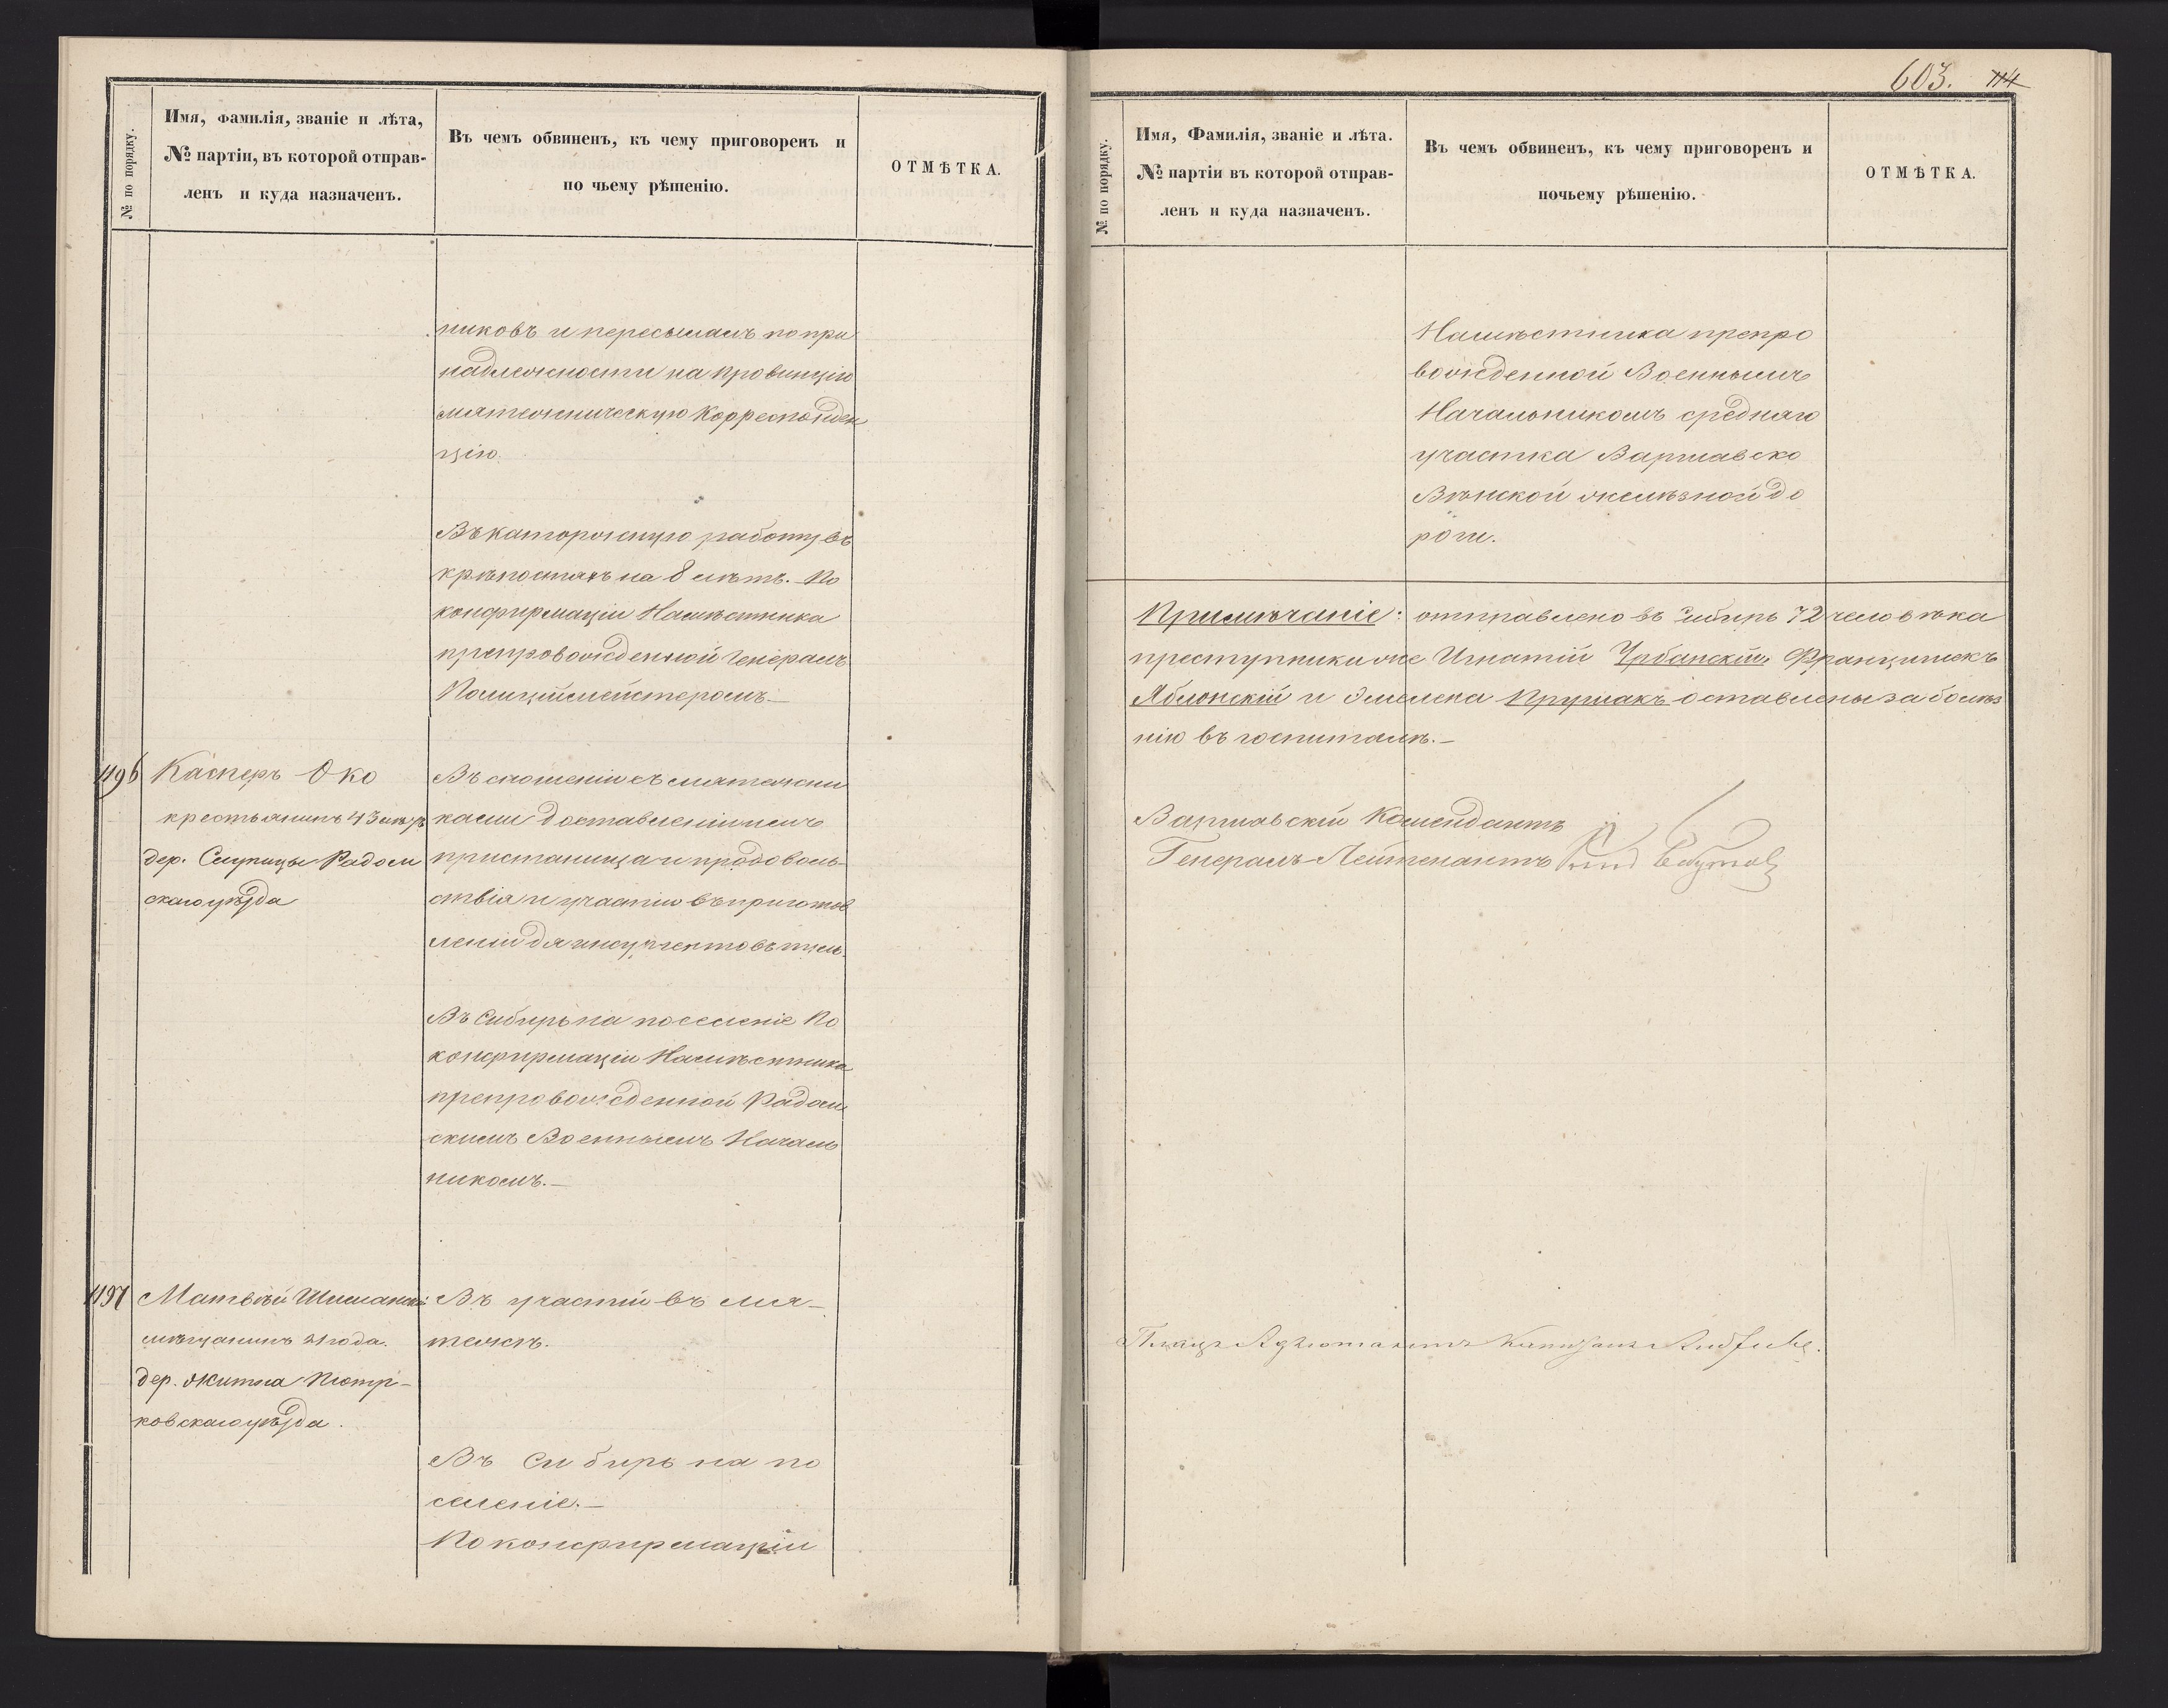 № по порядку.
Имя, фамилія, званіе и лѣта,
№ партіи, въ которой отправ-
ленъ и куда назначенъ.
Въ чемъ обвиненъ, къ чему приговоренъ и
по чьему рѣшенію.
ОТМѢТКА.
никовъ и пересылалъ по при
надлежности на провинцію
мятежническую корреспонден
цію.
Въ каторжную работу въ
крѣпостяхъ на 8 лѣтъ. По
конфирмаціи Намѣстника
препровожденной Генералъ
Полицiймейстеромъ.—
1196
Касперъ Око
крестьянинъ 43 лѣтъ
дер. Слупицы Радом
скаго уѣзда
Въ сношеніи съ мятежни
ками доставленіи имъ
пристанища и продоволь-
ствія и участію въ приготов
леніи для инсургентовъ
Въ Сибирь на поселеніе По
конфирмаціи Намѣстника
препровожденной Радом
скимъ Военнымъ Началь
никомъ.—
1197
Матвѣй Шиманскій
мѣщанинъ 21 года.
дер. Житна Піотр-
ковскаго уѣзда.
Въ участіи въ мя-
тежѣ.
Въ Сибирь на по
селеніе.—
По конфирмаціи
603. 114
№ по порядку.
Имя, Фамилія, званіе и лѣта.
№ партіи въ которой отправ-
ленъ и куда назначенъ.
Въ чемъ обвиненъ, къ чему приговоренъ и
почьему рѣшенію.
ОТМѢТКА.
Намѣстника препро
вожденной Военнымъ
Начальникомъ средняго
участка Варшавско
Вѣнской желѣзной до
роги.
Примѣчаніе: отправлено въ Сибирь 72 человѣка
преступники же Игнатій Урбанскій, Францишекъ
Яблонскій и Эмелека Прушакъ оставлены за болѣз
нію въ госпиталѣ.—
Варшавскій Комендантъ
Генералъ-Лейтенантъ
Плацъ Адъютантъ Капитанъ